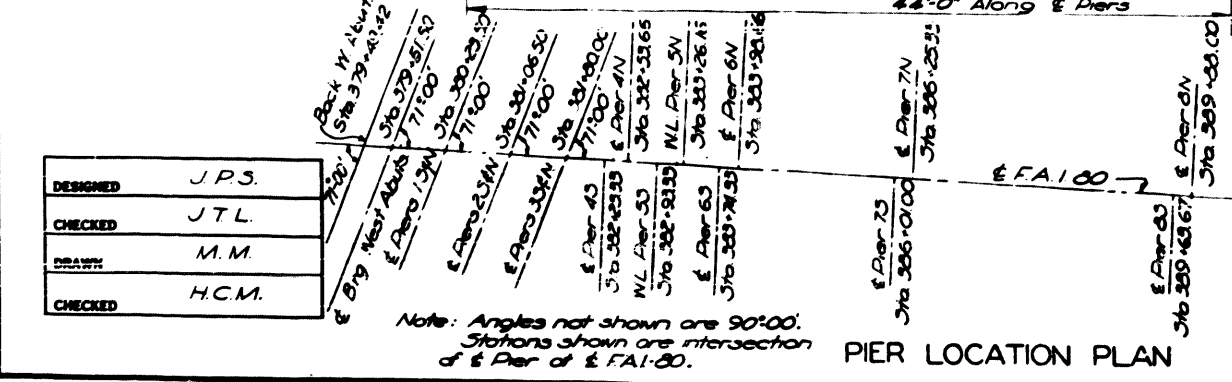 44'-0" Along ℄ Piers
Back W. Abut.
Sta. 379+42.42
Sta. 379+51.50
71°00'
Sta. 380+29.50
71°00'
Sta. 381+06.50
71°00'
Sta. 381+80.00
71°00'
℄ Pier 4N
Sta. 382+59.65
W.L. Pier 5N
℄ Pier 6N
℄ Pier 7N
Sta. 386+25.33
℄ Pier 8N
Sta. 389+88.00
71°00'
℄ F.A.I.-80
℄ Brg. West Abuts.
℄ Piers 1S&N
℄ Piers 2S&N
℄ Piers 3S&N
℄ Pier 4S
W.L. Pier 5S
℄ Pier 6S
℄ Pier 7S
Sta. 386+01.00
℄ Pier 8S
Sta. 389+69.67
DESIGNED J.P.S.
CHECKED J.T.L.
DRAWN M.M.
CHECKED H.C.M.
Note: Angles not shown are 90°00'.
Stations shown are intersection
of ℄ Pier at ℄ FAI-80.
PIER LOCATION PLAN